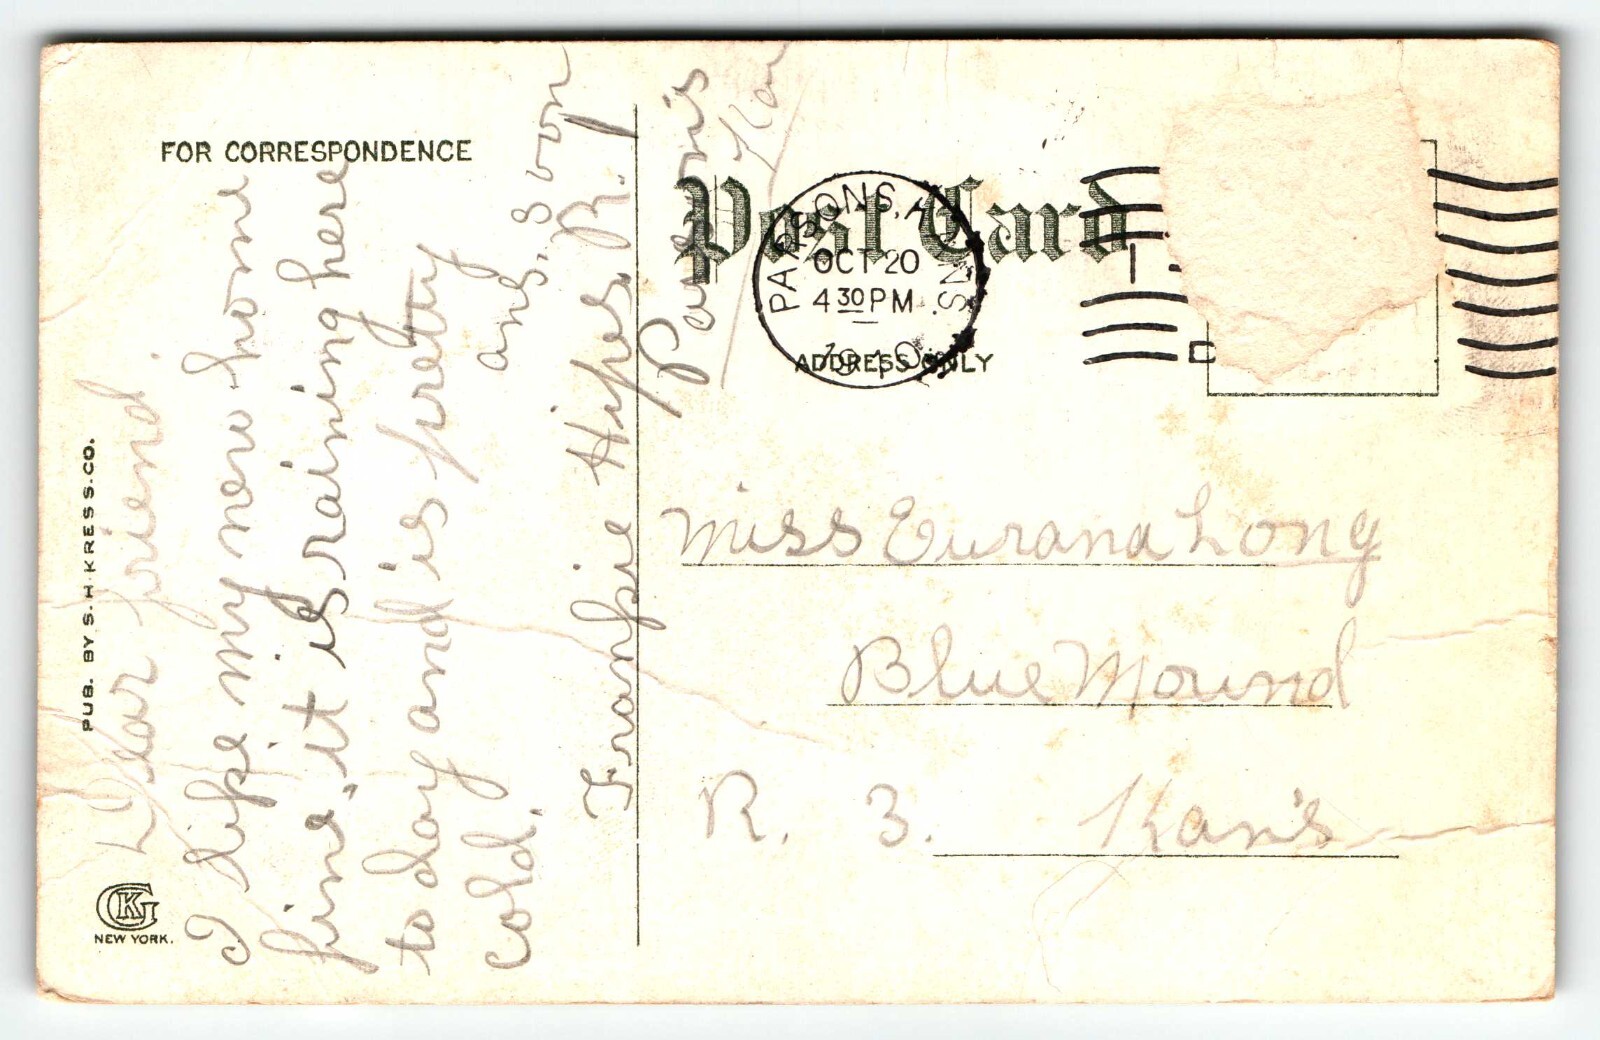 FOR CORRESPONDENCE
Dear friend
I like my new home
fine, it is raining here
to day and is pretty
cold. ans. soon
Frankie Hipes. R. 1
Parsons
Kan
Post Card
PARSONS,
OCT 20
4 30 PM
1910
ADDRESS ONLY
Miss Eurana Long
Blue Mound
R. 3. Kan's
PUB. BY S. H. KRESS. CO.
NEW YORK.